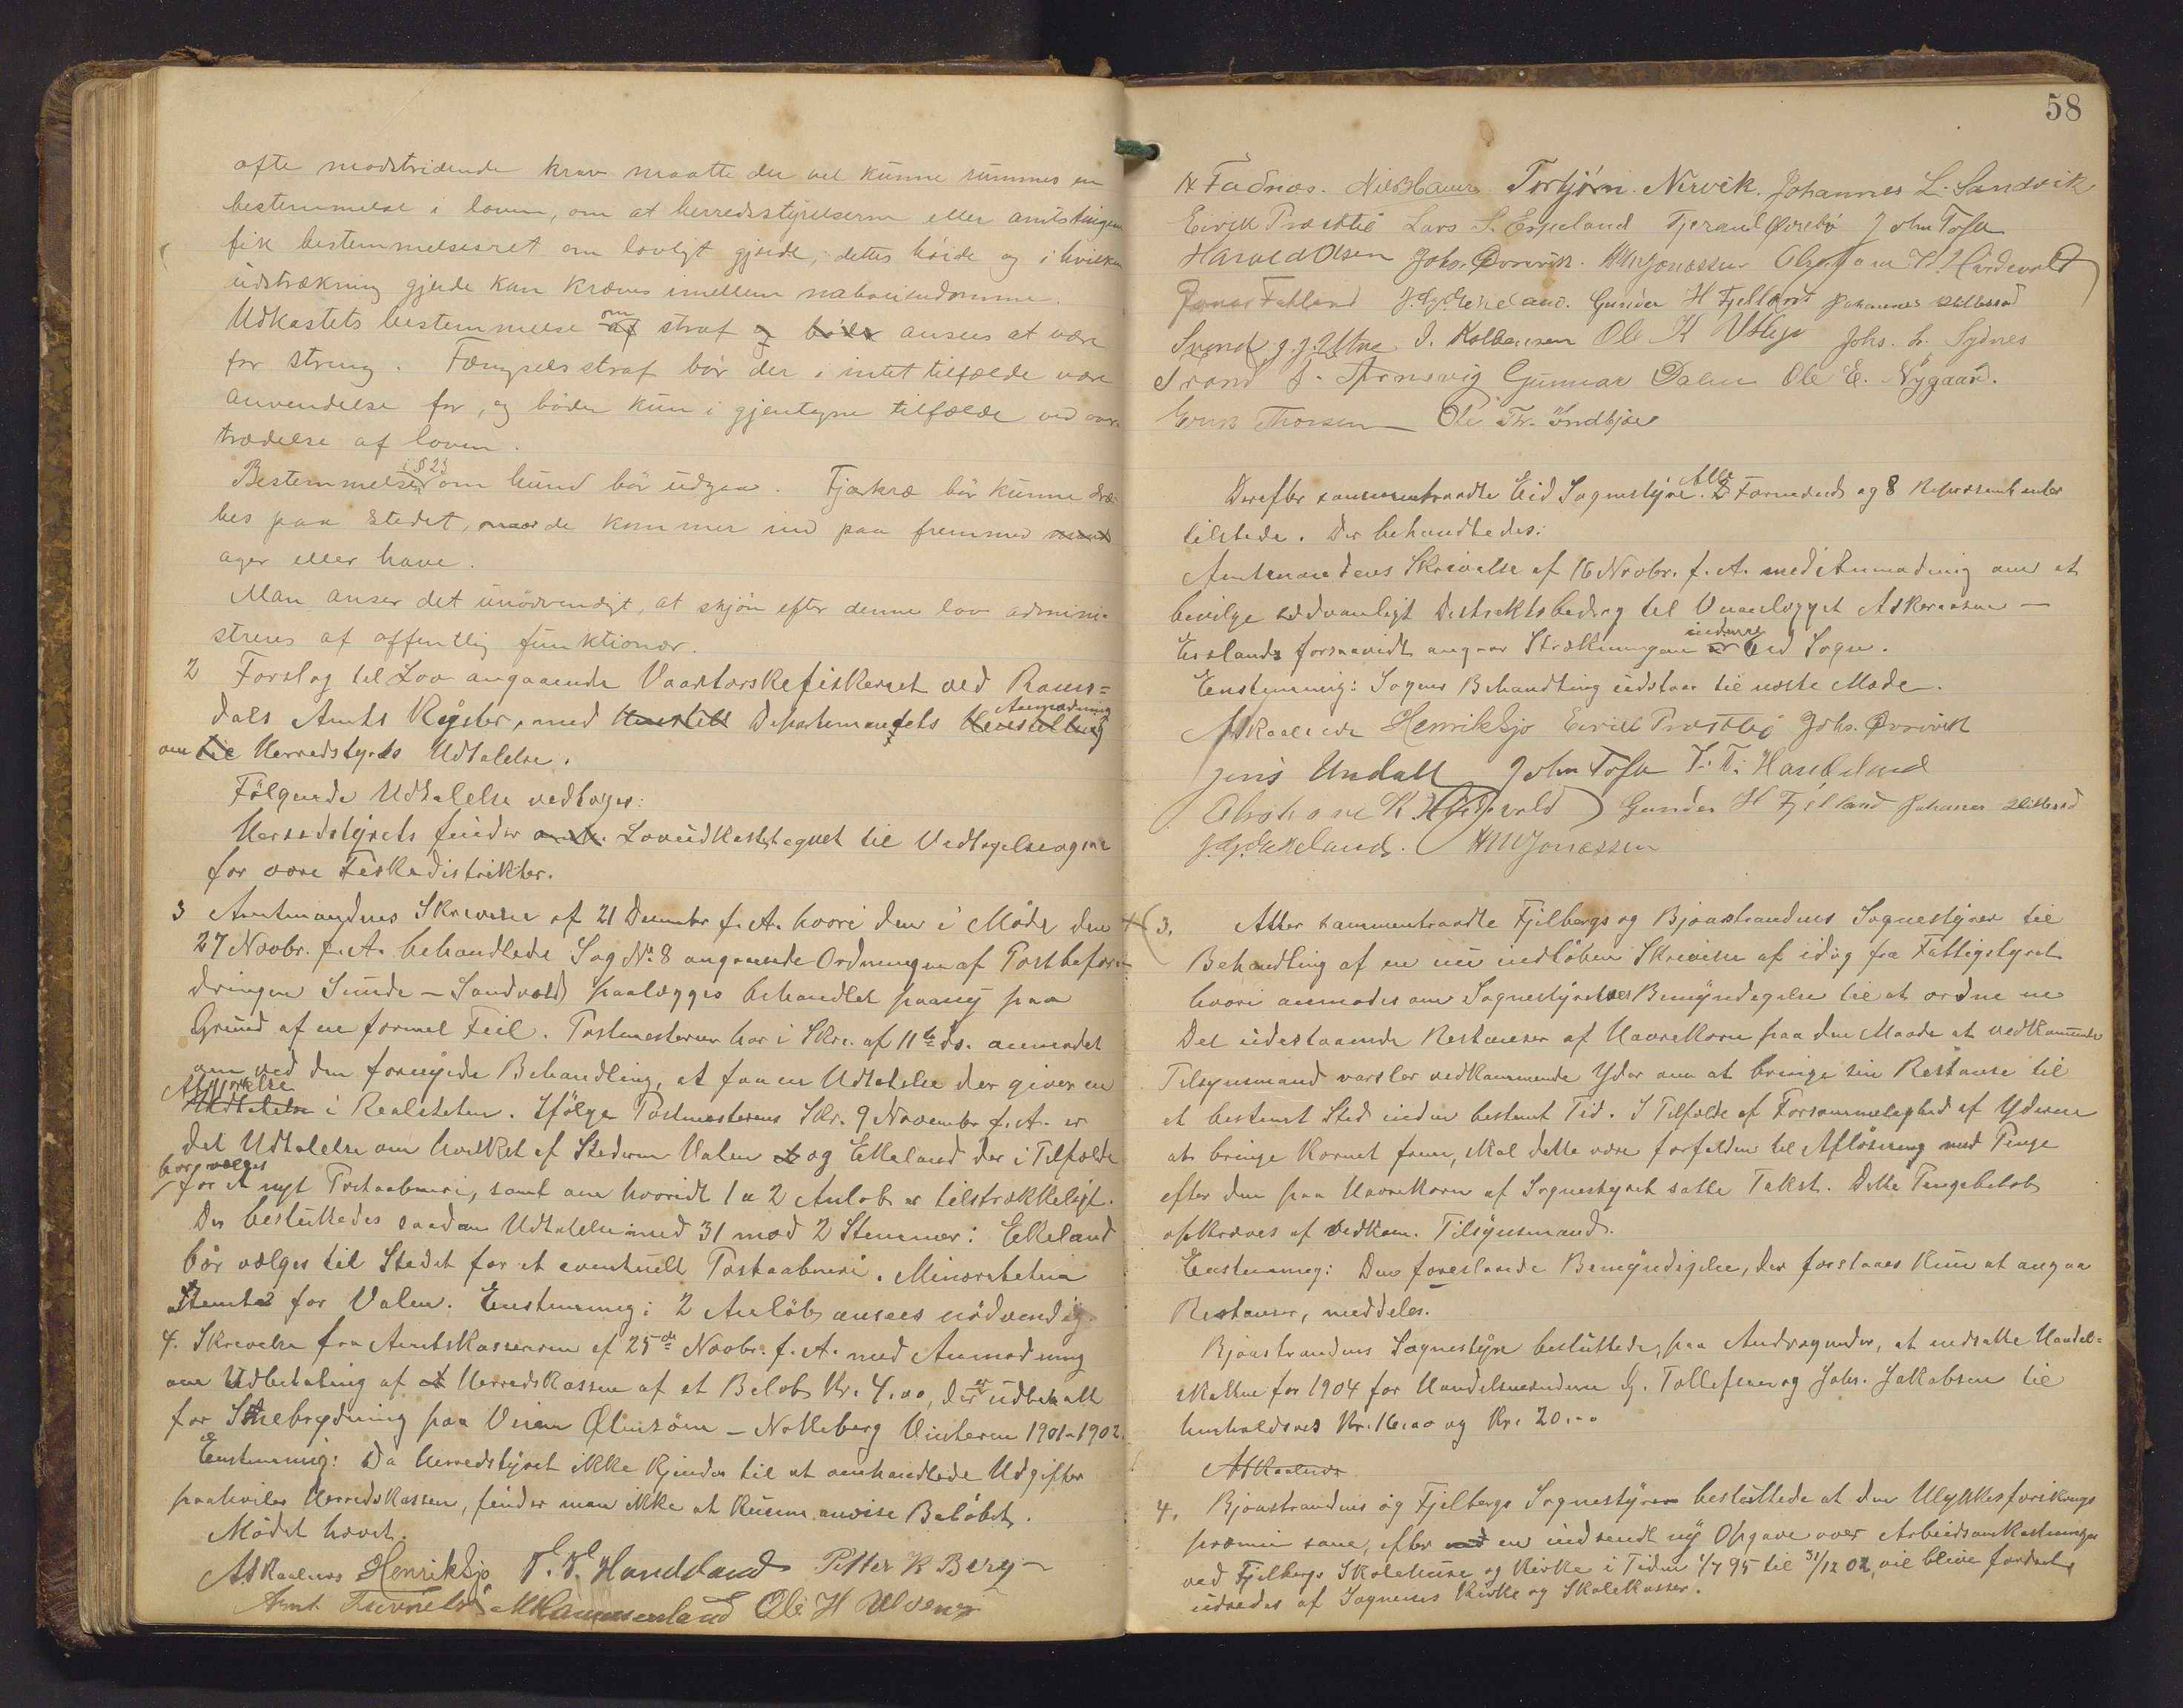 ofte modstridende krav maatte der vel kunne rummes en
bestemmelse i loven, om at herredsstyrelserne eller amtstingene
fik bestemmelsesret om lovligt gjerde, dettes høide og i hvilken
udstrækning gjerde kan kræves imellem naboeiendomme.
Udkastets bestemmelse om straf og bøder ansees at være
for streng. Fængselsstraf bør der i intet tilfælde være
anvendelse for, og bøder kun i gjentagne tilfælde ved over-
trædelse af loven.
Bestemmelsen i § 23 om hund bør udgaa. Fjærkræ bør kunne dræ-
bes paa stedet, naar de kommer ind paa fremmed
ager eller have.
Man anser det unødvendigt, at skjøn efter denne lov admini-
streres af offentlig funktionær.
2 Forslag til Lov angaaende Vaartorskefiskeriet ved Roms-
dals Amts Kyster, med Departementets Anmodning
om Herredstyrets Udtalelse.
Følgende Udtalelse vedtoges:
Herredstyret finder Lovudkastet egnet til Vedtagelse ogsaa
for vore Fiskedistrikter.
3 Amtmandens Skrivelse af 21 December f. A. hvori den i Møde den
27 Novbr. f. A. behandlede Sag No. 8 angaaende Ordningen af Postbefor-
dringen Sunde – Sandvold paalægges behandlet paany paa
Grund af en formel Feil. Postmesteren har i Skr. af 11te ds. anmodet
om ved den fornyede Behandling, at faa en Udtalelse der giver en
Afgjørelse i Realiteten. Ifølge Postmesterens Skr. 9 November f. A. er
det Udtalelse om hvilket af Stederne Valen og Ekeland der i Tilfælde
bør vælges for et nyt Postaabneri, samt om hvorvidt 1 a 2 Anløb er tilstrækkeligt.
Der besluttedes saadan Udtalelse med 31 mod 2 Stemmer: Ekeland
bør vælges til Stedet for et eventuelt Postaabneri. Minoriteten
stemte for Valen. Enstemmig: 2 Anløb ansees nødvendig.
4. Skrivelse fra Amtskassereren af 25de Novbr. f. A. med Anmodning
om Udbetaling af Herredskassen af et Beløb Kr. 4,00, der er udbetalt
for Snebrydning paa Veien Ølensøen – Notteberg Vinteren 1901–1902.
Enstemmig: Da Herredstyret ikke kjender til at omhandlede Udgifter
paahviler Herredskassen, finder man ikke at kunne anvise Beløbet.
Mødet hævet.
A. Skaalnes Henrik Sjo T. T. Handeland Petter K Berg
Ole H Ulvenes
58
N Fadnæs. Torbjørn Nervik. Johannes L. Sandvik
Eirik Præstbø Lars S. Espeland Tjerand Øvrebø John Tofte
Harald Olsen Johs. Øvrevik. HMJonassen Abraham K. Hardevold
Jonas Fatland J. G. Ekeland. Gunder H Fjelland Johannes
Svend J. J. Utne I. Kolbeinsen Ole K Johs. L. Sydnes
Trond J. Gunnar Dalen Ole E. Nygaard.
Thorsen Ole Th. Indbjoe
Derefter sammentraadte Eid Sognestyre. Alle Formænd og 8 Repræsentanter
tilstede. Der behandledes:
Amtmandens Skrivelse af 16 Novbr. f. A. med Anmodning om at
bevilge sædvanligt Distriktsbidrag til Veianlægget Askeraasen –
Eisland forsaavidt angaar Strækningen indenfor Eid Sogn.
Enstemmig: Sagens Behandling udstaar til næste Møde.
A Skaalnes Henrik Sjo Eirik Præstbø Johs. Øvrevik
Jens Undall John Tofte T. T. Handeland
Abraham K. Hardevold Gunder H Fjelland Johannes
J. G. Ekeland. HMJonassen
3. Atter sammentraadte Fjelbergs og Bjoastrandens Sognestyrer til
Behandling af en nu indløben Skrivelse af idag fra Fattigstyret
hvori anmodes om Sognestyrets Bemyndigelse til at ordne en
Del udestaaende Restanser af Havrekorn paa den Maade at vedkommende
Tilsynsmand varsler vedkommende Yder om at bringe sin Restanse til
et bestemt Sted inden bestemt Tid. I Tilfælde af Forsømmelighed af Yderen
at bringe Kornet frem, skal dette være forfalden til Afløsning med Penge
efter den paa Havrekorn af Sognestyret satte Takst. Dette Pengebeløb
opkræves af vedkom. Tilsynsmand.
Enstemmig: Den foreslaaede Bemyndigelse, der forstaaes kun at angaa
Restanser, meddeles.
Bjoastrandens Sognestyre besluttede, paa Andragender, at nedsætte Handel-
skatten for 1904 for Handelsmændene G. Tollefsen og Johs. Jakobsen til
henholdsvis Kr. 16.00 og Kr. 20.00
A Skaalnes
4. Bjoastrandens og Fjelbergs Sognestyrer besluttede at den Ulykkesforsikrings
præmie som, efter en indsendt ny Opgave over Arbeidsomkostninger
ved Fjelbergs Skolehuse og Kirke i Tiden 1/7 95 til 31/12 02, vil blive fordret,
udredes af Sognenes Kirke og Skolekasser.